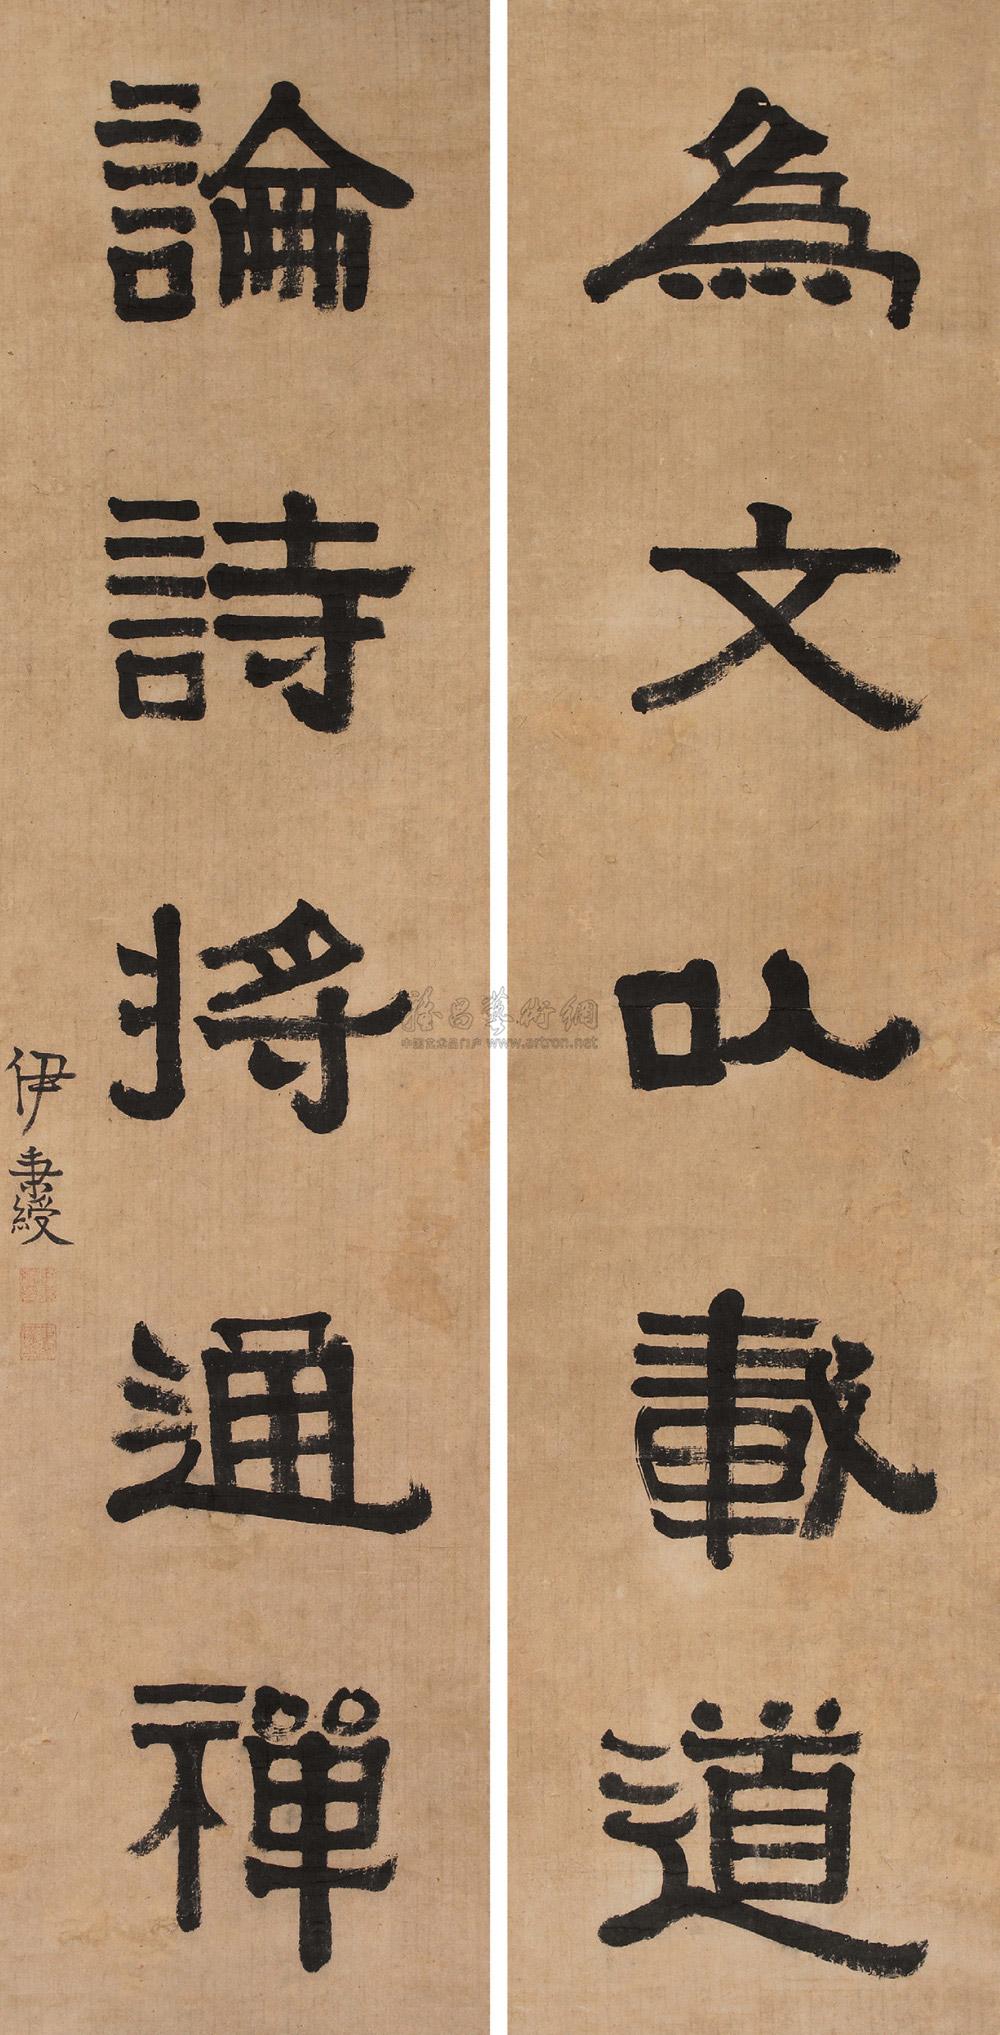 為文㠯載道
論詩將通禪
伊秉綬
雅昌藝術網
中国艺术品门户 www.artron.net